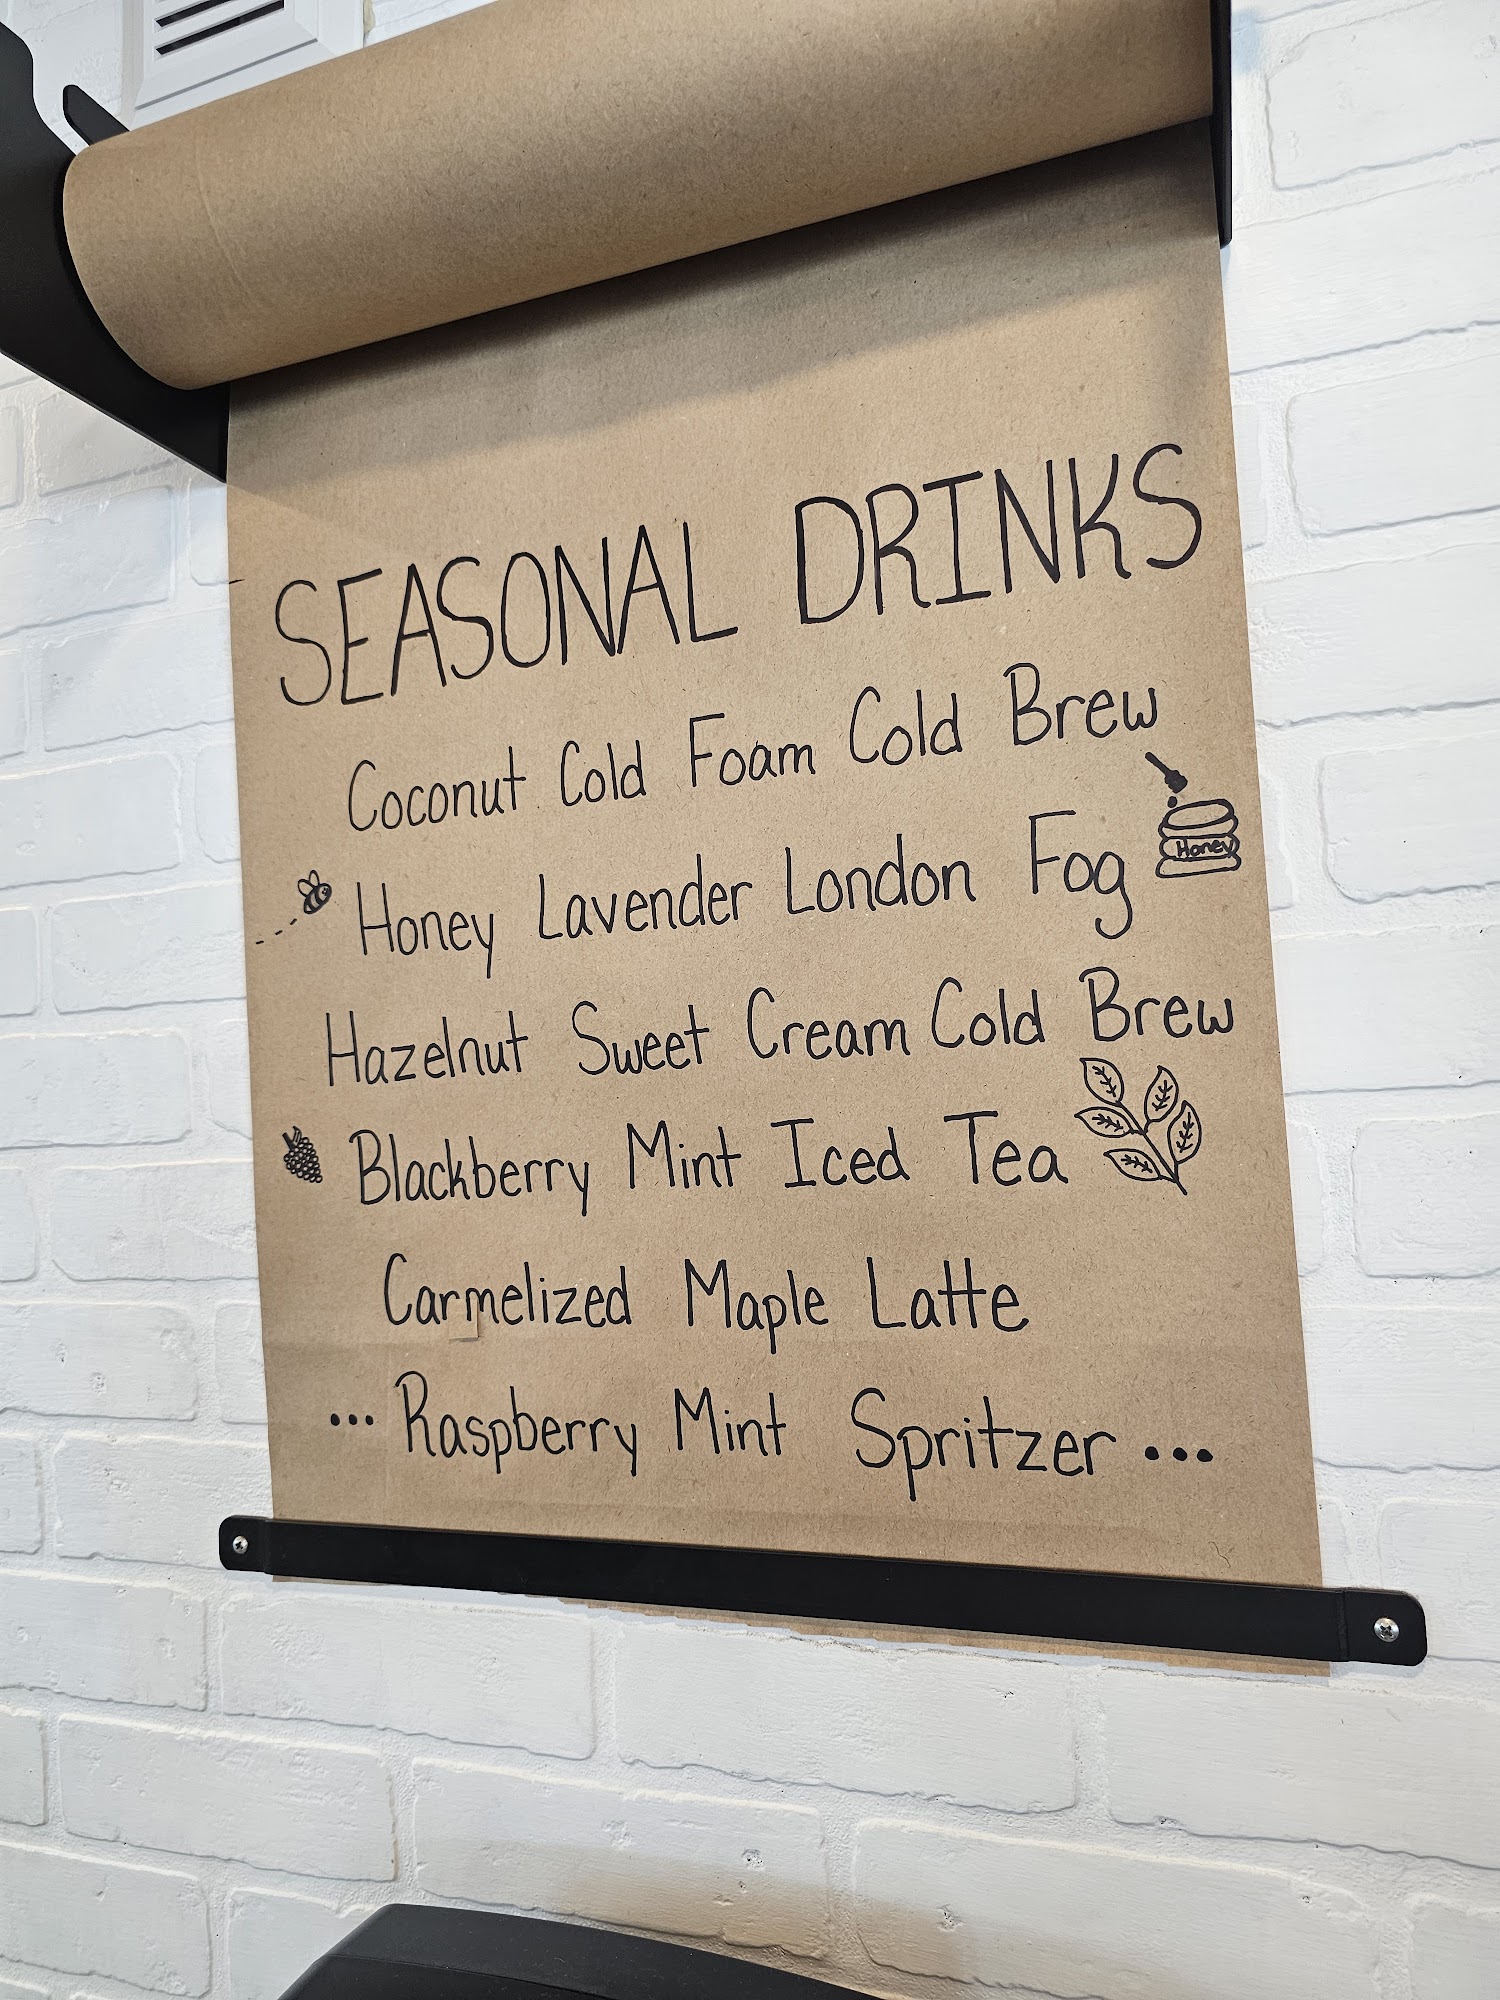 SEASONAL DRINKS
Coconut Cold Foam Cold Brew
Honey Lavender London Fog
Honey
Hazelnut Sweet Cream Cold Brew
Blackberry Mint Iced Tea
Carmelized Maple Latte
... Raspberry Mint Spritzer ...